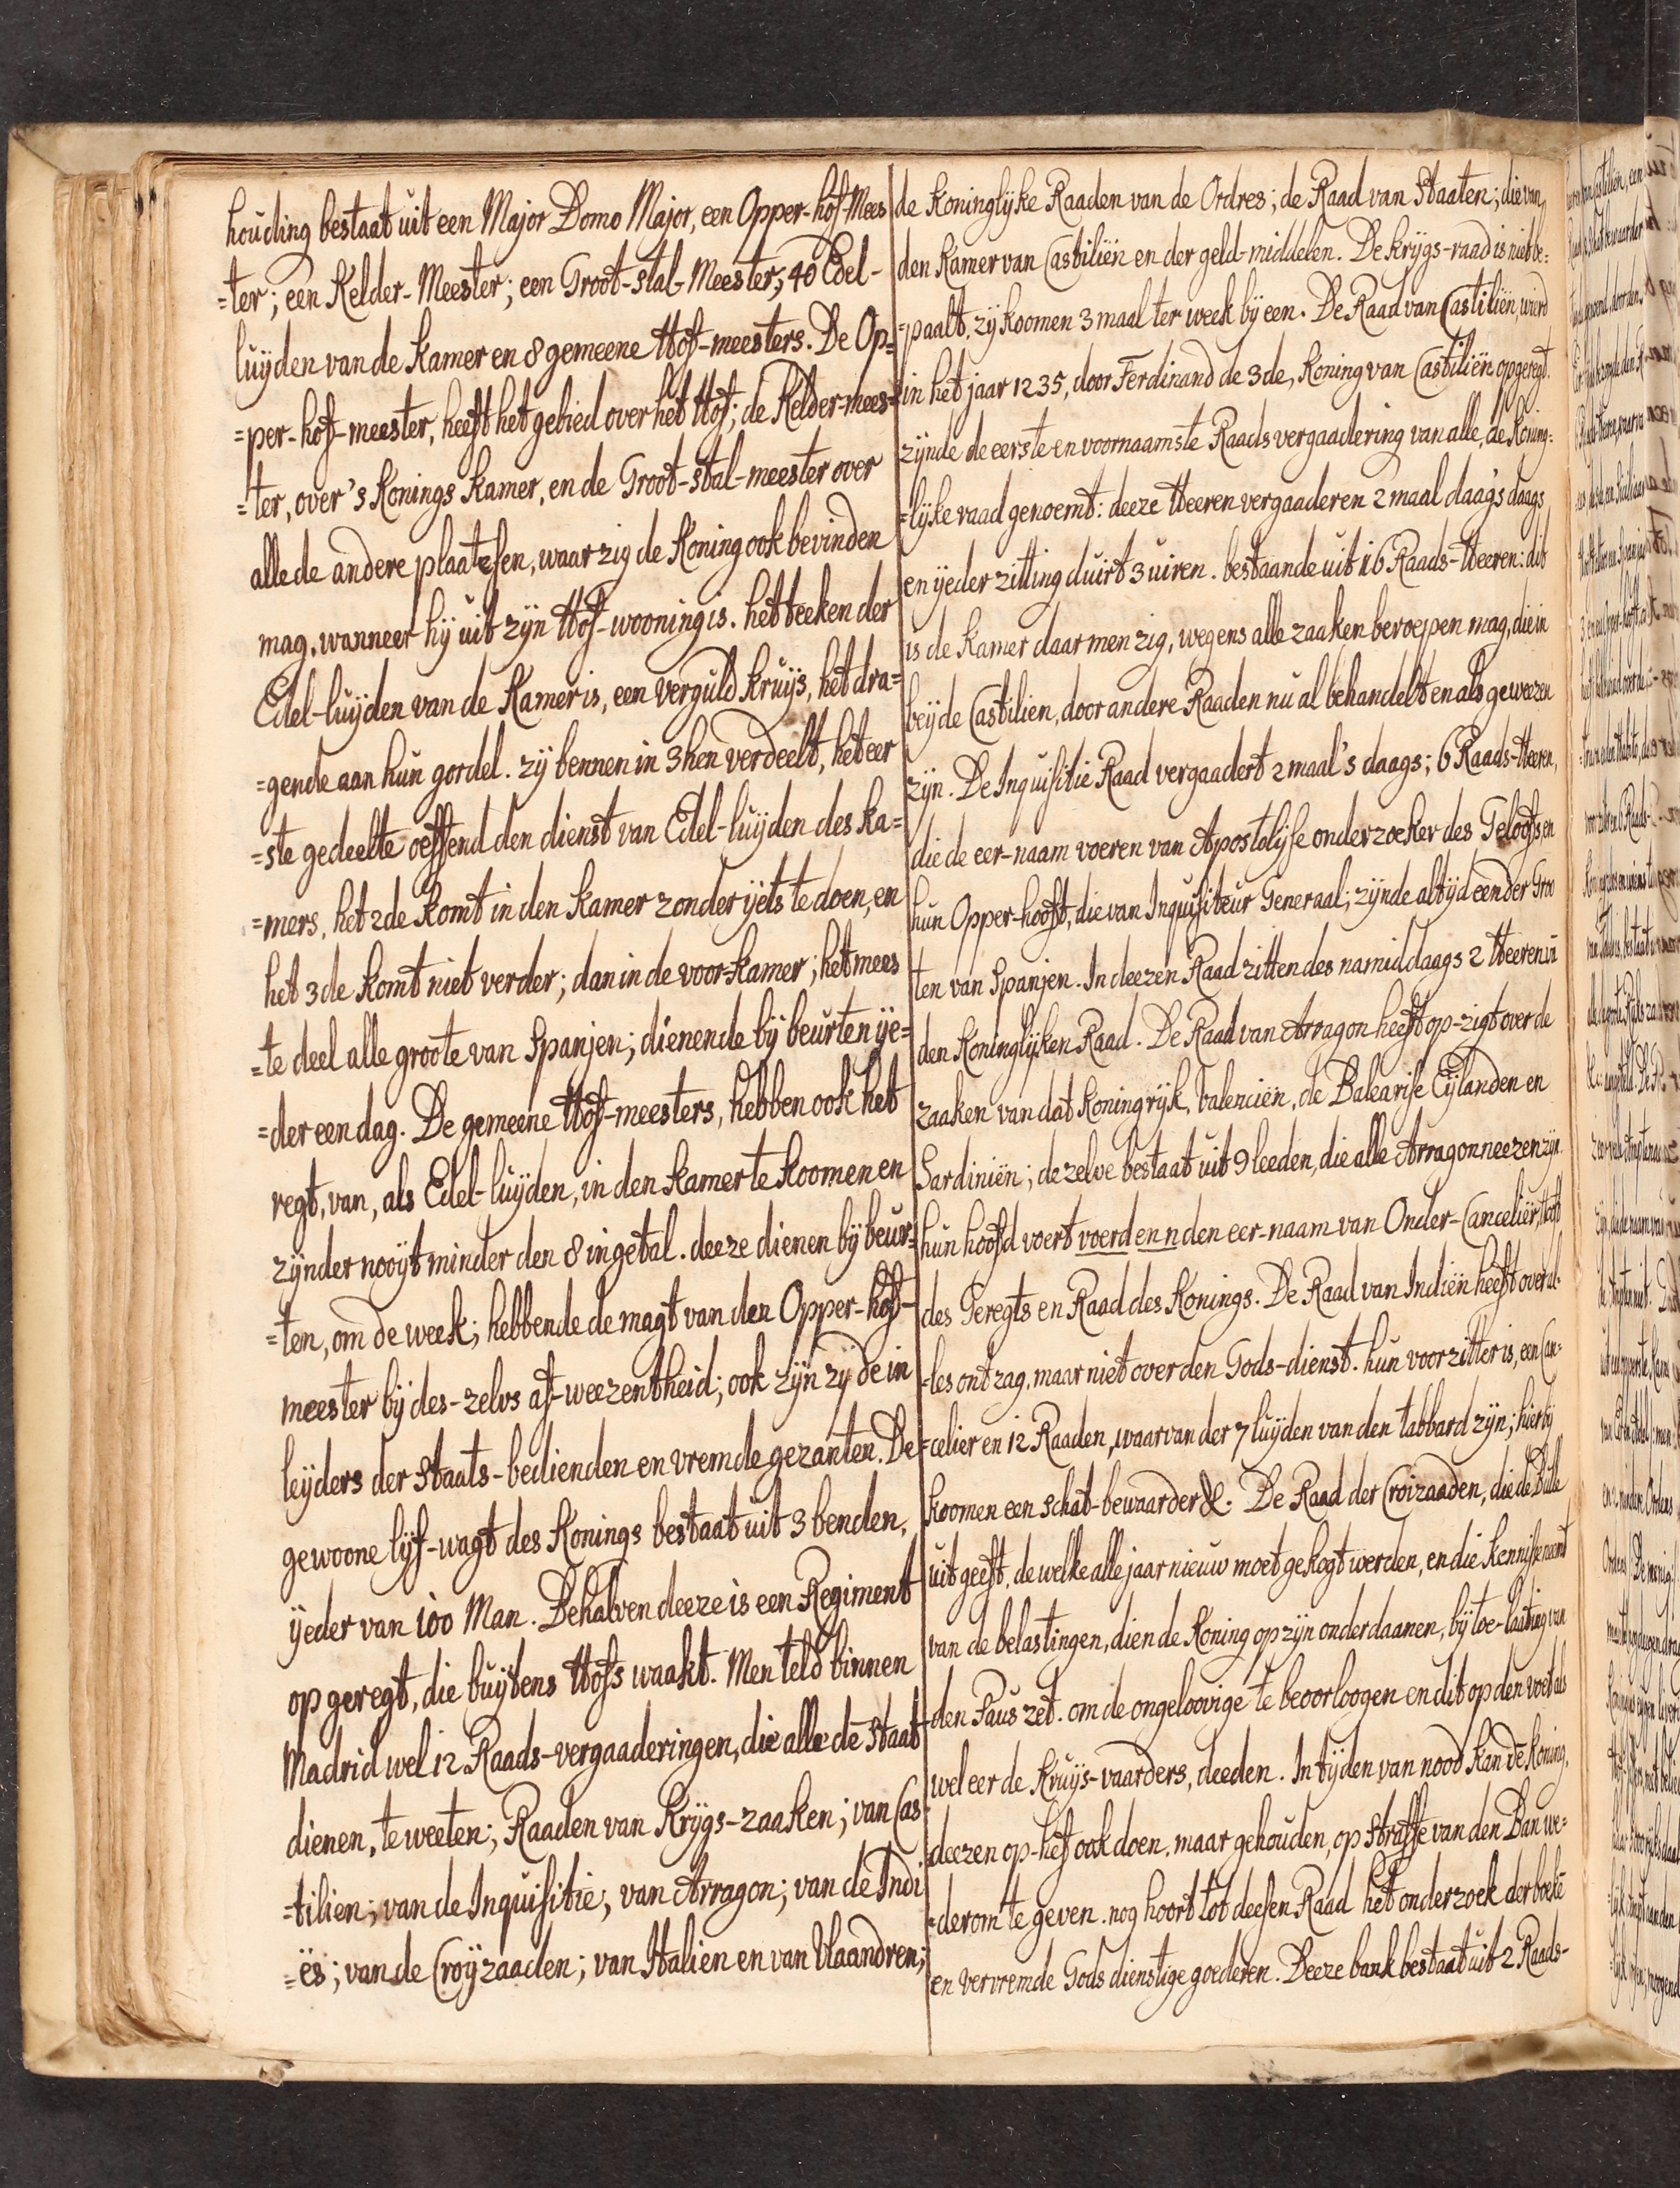 houding bestaat uit een Major Domo Major, een Opper-hof-Mees
=ter; een Kelder-Meester; een Groot-stal-Meester; 40 Edel-
luijden van de Kamer en 8 gemeene Hof-meesters. De Op=
=per-hof-meester, heeft het gebied over het Hof; de Kelder-mees=
=ter, over 's Konings Kamer, en de Groot-stal-meester over
alle de andere plaatesen, waar zig de Koning ook bevinden
mag, wanneer hij uit zijn Hof-wooning is. het teeken der
Edel-luijden van de Kamer is, een verguld kruijs, het dra=
=gende aan hun gordel. zij bennen in 3ken verdeelt, het eer
=ste gedeelte oeffend den dienst van Edel-luijden des ka=
=mers, het 2de komt in den kamer zonder ijets te doen, en
het 3de komt niet verder; dan in de voor-kamer; het mees
=te deel alle groote van Spanjen; dienende bij beurten ije=
=der een dag. De gemeene Hof-meesters, hebben ook het
regt, van, als Edel-luijden, in den kamer te koomen en
zijnder nooijt minder den 8 in getal. deeze dienen bij beur=
=ten, om de week; hebbende de magt van den Opper-hof-
meester bij des-zelvs af-weezentheid; ook zijn zij de in
leijders der Staats-bedienden en vremde gezanten. De
gewoone lijf-wagt des Konings bestaat uit 3 benden,
ijeder van 100 Man. Behalven deeze is een Regiment
opgeregt, die buijtens Hofs waakt. Men teld binnen
Madrid wel 12 Raads-vergaaderingen, die alle de Staat
dienen, te weeten; Raaden van Krijgs-zaaken; van Cas
=tilien; van de Inquisitie; van Arragon; van de Indi
=ës; van de Croijzaaden; van Italien en van Vlaandren;
de koninglijke Raaden van de Ordres; de Raad van Staaten; die van
den Kamer van Castiliën en der geld-middelen. De krijgs-raad is niet be=
=paalt, zij koomen 3 maal ter week bij een. De Raad van Castiliën, wierd
in het jaar 1235, door Ferdinand de 3de, Koning van Castiliën opgeregt.
zijnde de eerste en voornaamste Raads vergaadering van alle, de Koning=
=lijke raad genoemt: deeze Heeren vergaaderen 2 maal daags daags
en ijeder zitting duirt 3 uiren. bestaande uit 16 Raads-Heeren: dit
is de kamer daar men zig, wegens alle zaaken beroepen mag, die in
beijde Castilien, door andere Raaden nu al behandelt en als geweezen
zijn. De Inquisitie Raad vergaadert 2 maal 's daags; 6 Raads-Heeren,
die de eer-naam voeren van Apostolijse onderzoeker des Geloofs, en
hun Opper-hooft, die van Inquisiteur Generaal; zijnde altijd een der Groo
ten van Spanjen. In deezen Raad zitten des namiddaags 2 Heeren in
den Koninglijken Raad. De Raad van Arragon heeft op-zigt over de
zaaken van dat Koningrijk, valenciën, de Balearise Eijlanden en
Sardiniën; dezelve bestaat uit 9 leeden, die alle Arragonneezen zijn.
hun hoofd voert voerd en n den eer-naam van Onder-Canceliër, Hoft
des Geregts en Raad des Konings. De Raad van Indiën heeft over al-
=les ontzag, maar niet over den Gods-dienst. hun voorzitter is, een Can=
=celier en 12 Raaden, waarvan der 7 luijden van den tabbard zijn; hier bij
koomen een schat-bewaarder &. De Raad der Croizaaden, die de Bulle
uit geeft, de welke alle jaar nieuw moet gekogt werden, en die kennisse neemt
van de belastingen, dien de Koning op zijn onderdaanen, bij toe-laating van
den Paus zet. om de ongeloovige te beoorloogen en dit op den voet als
wel eer de Kruijs-vaarders, deeden. In tijden van nood kan de Koning,
deezen op-hef ook doen, maar gehouden, op Straffe van den Ban we=
=derom te geven. nog hoort tot deesen Raad het onderzoek der boekē
en vervremde Gods dienstige goederen. Deeze bank bestaat uit 2 Raads-